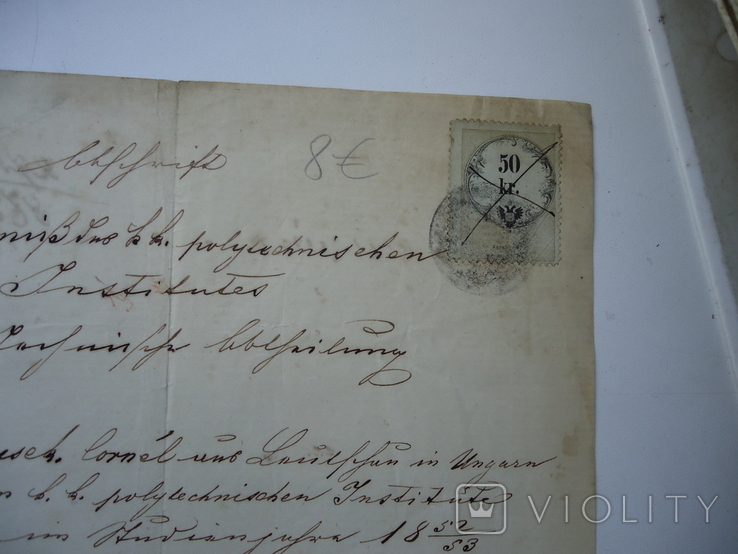 Abschrift
8€
50
kr.
niß des k. k. polytechnischen
Institutes
Technische Abtheilung
Cornél aus Leutschau in Ungarn
k. k. polytechnischen Institute
im Studienjahre 18 52/53
VIOLITY